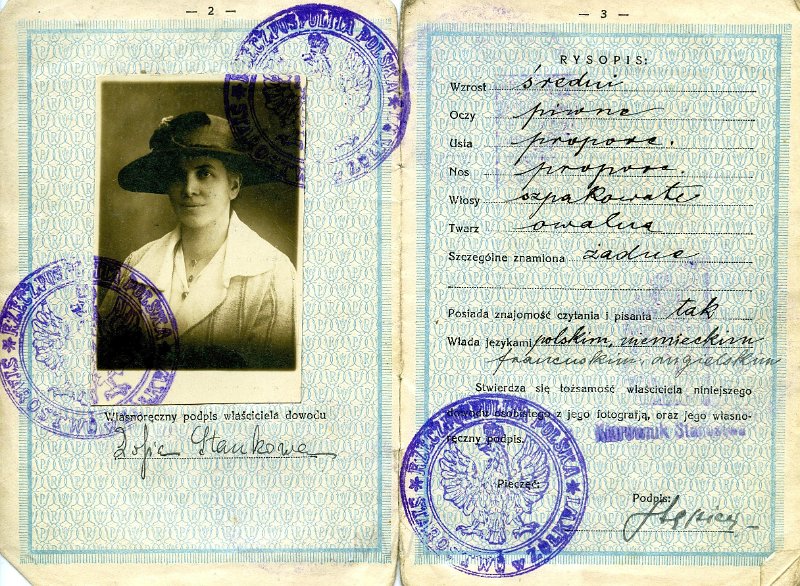 — 2 —
RZECZPOSPOLITA POLSKA
STAROSTWO w ŻÓŁKWI
RZECZPOSPOLITA POLSKA
STAROSTWO w ŻÓŁKWI
Własnoręczny podpis właściciela dowodu
Zofja Stankowa
— 3 —
RYSOPIS:
Wzrost średni
Oczy piwne
Usta propore.
Nos propore.
Włosy szpakowate
Twarz owalna
Szczególne znamiona żadne
Posiada znajomość czytania i pisania tak
Włada językami polskim, niemieckim
francuskim, angielskim
Stwierdza się tożsamość właściciela niniejszego
dowodu osobistego z jego fotografją, oraz jego własno-
ręczny podpis.
Kierownik Starostwa
Pieczęć:
Podpis:
RZECZPOSPOLITA POLSKA
STAROSTWO w ŻÓŁKWI